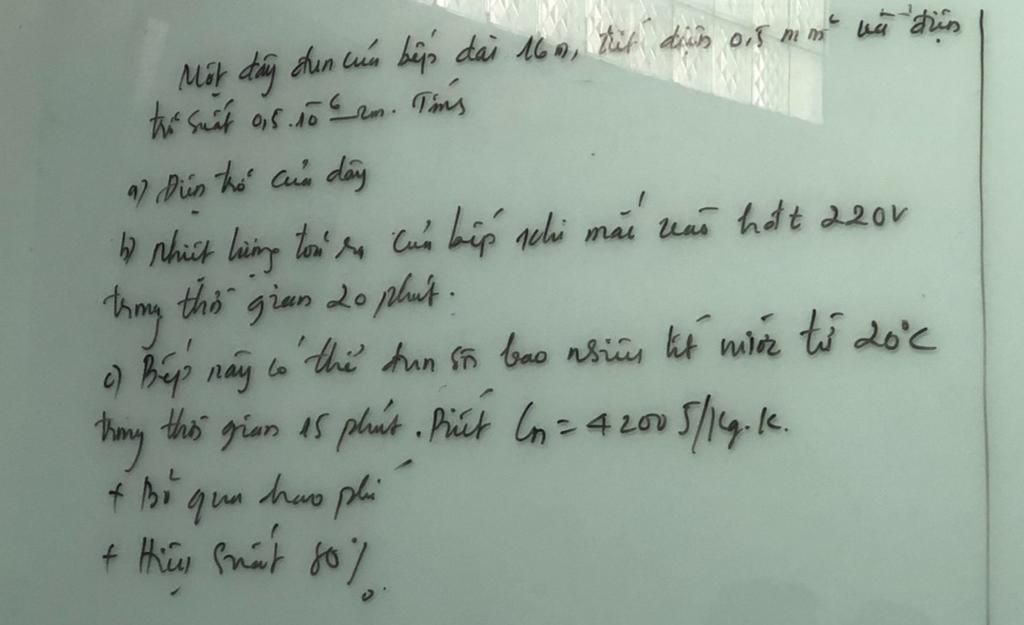 Một dây đun của bếp dài 16m, tiết diện 0,5 mm² và điện
trở suất 0,5.10⁻⁶ Ωm. Tính
a) Điện trở của dây
b) Nhiệt lượng toả ra của bếp khi mắc vào hđt 220V
trong thời gian 20 phút.
c) Bếp này có thể đun sôi bao nhiêu lít nước từ 20°C
trong thời gian 15 phút. Biết Cn = 4200 J/kg.K.
+ Bỏ qua hao phí
+ Hiệu suất 80%.